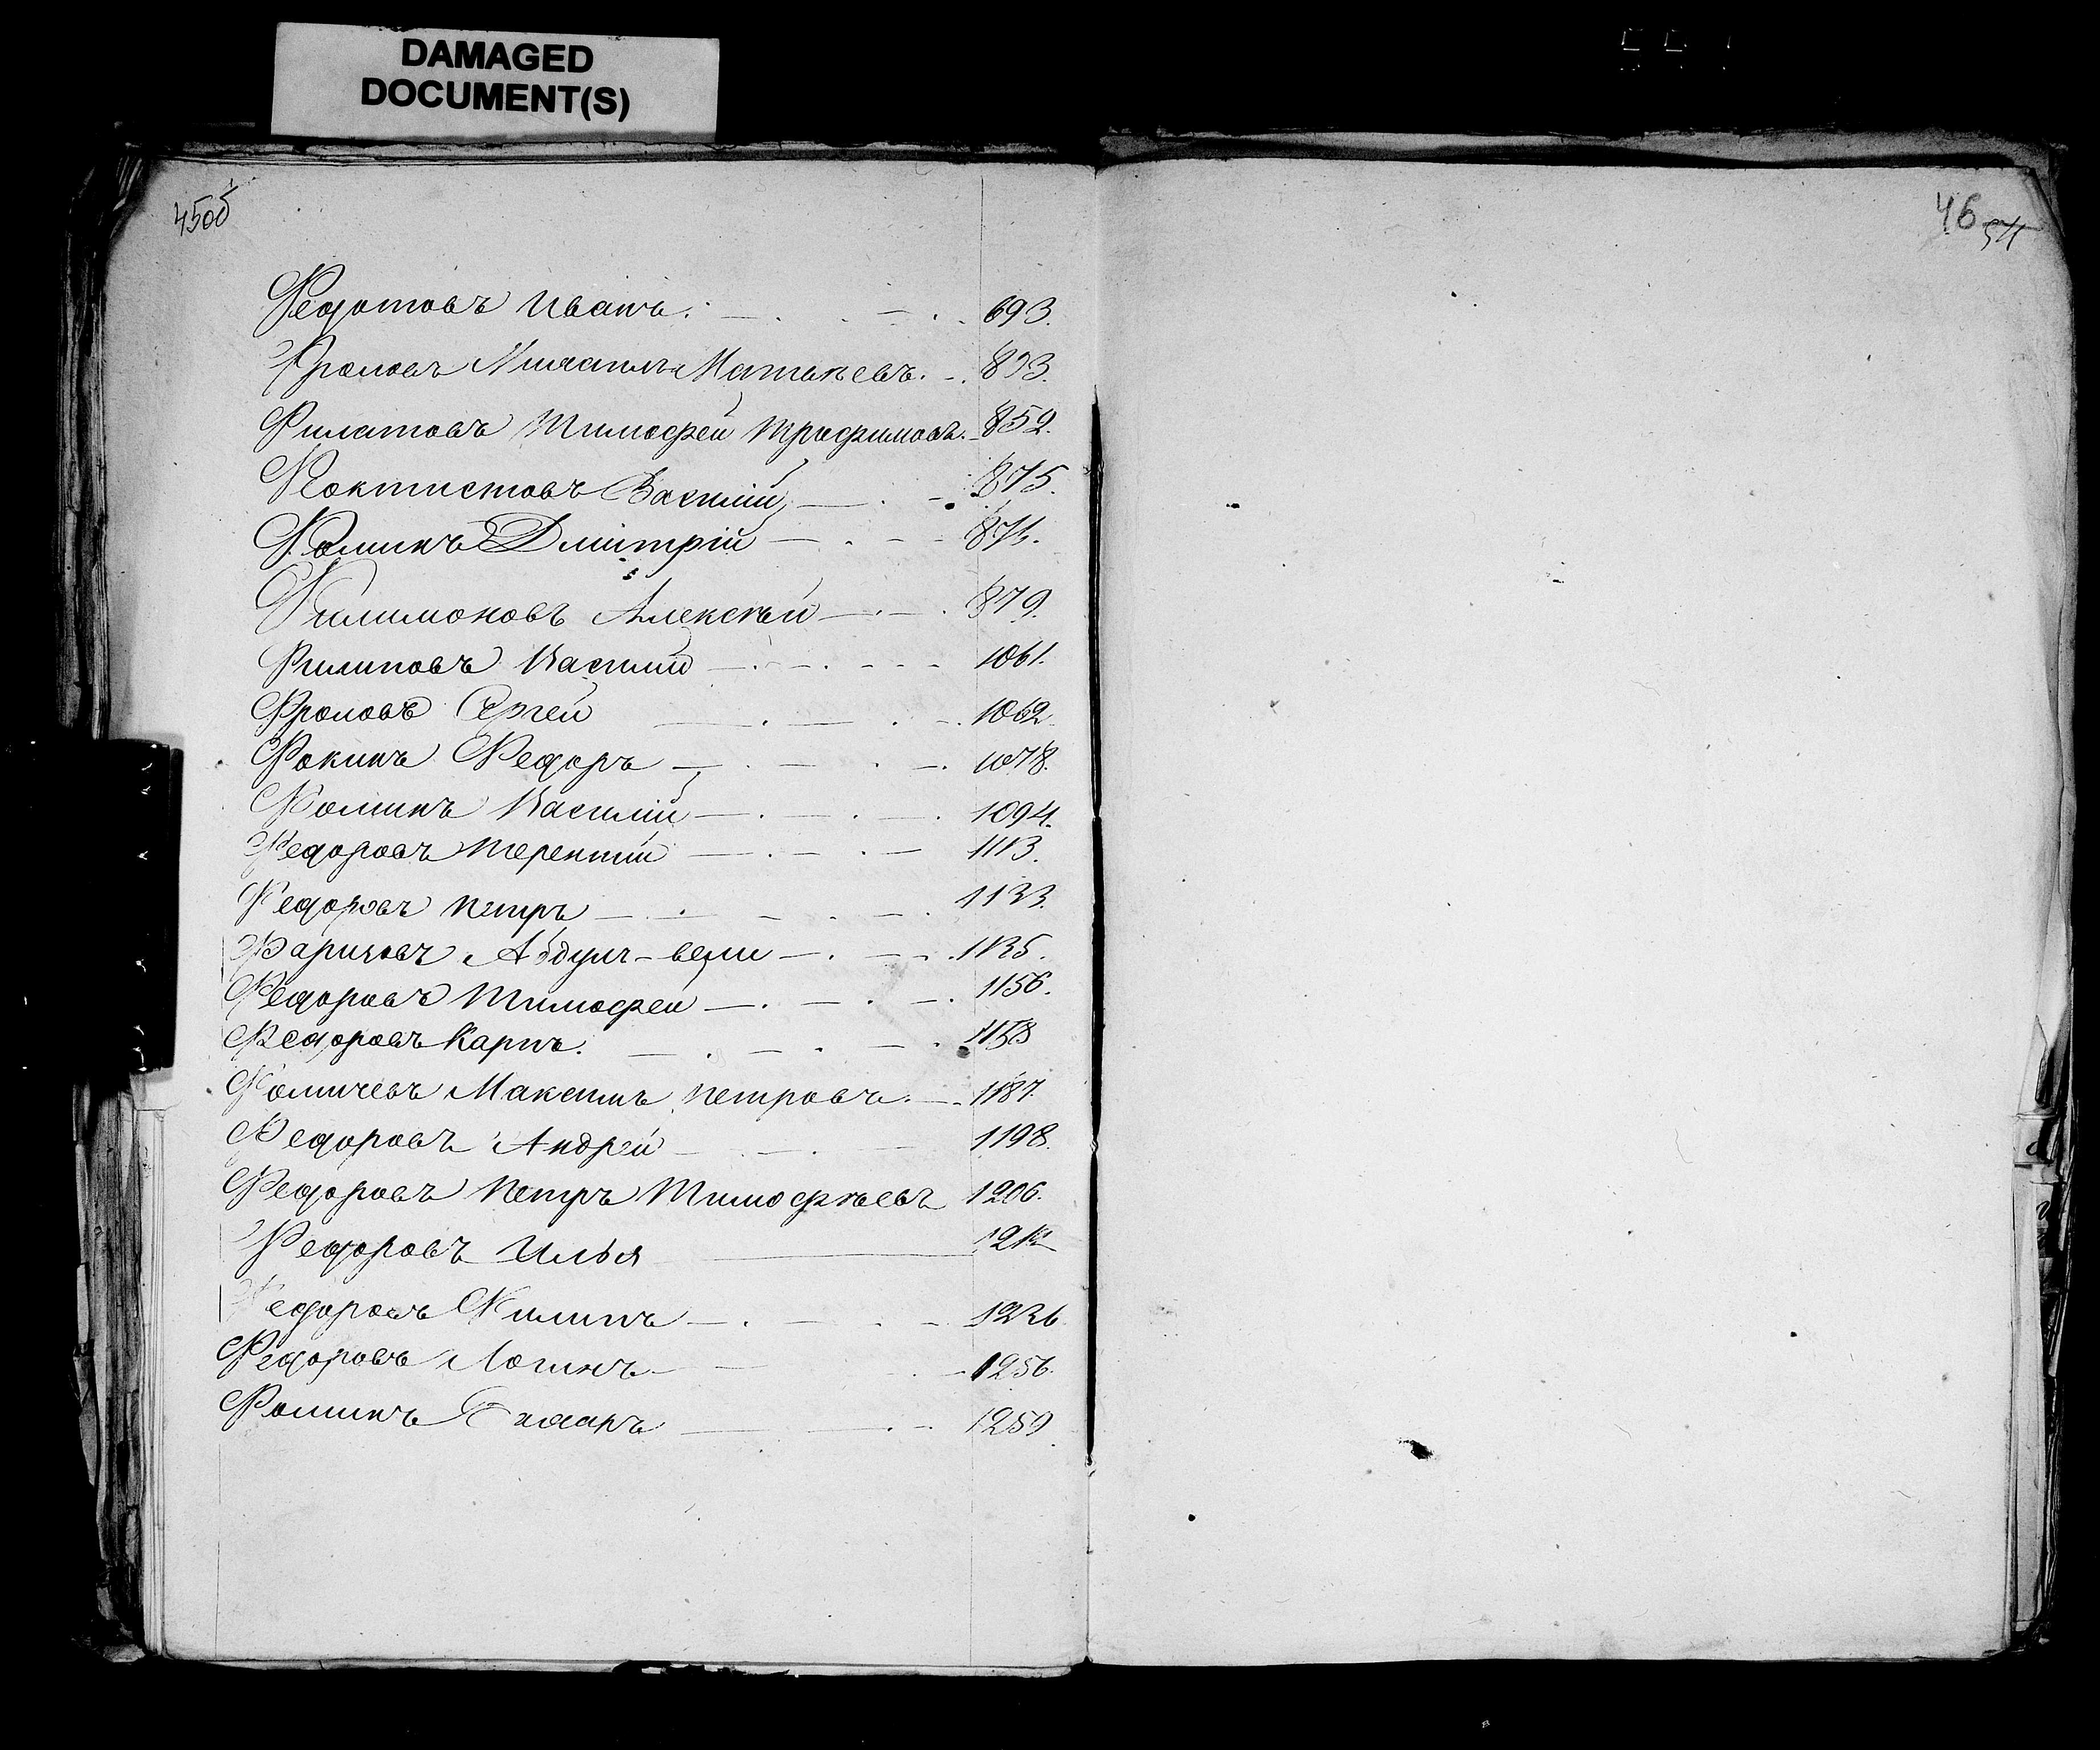 DAMAGED
DOCUMENT(S)
45об
46 54
Федотовъ Иванъ. 693.
Фроловъ Михаилъ Матвѣевъ. 893.
Филатовъ Тимофей Трофимовъ. 852.
Феоктистовъ Василій 875.
Фоминъ Дмитрій
Филимоновъ Алексѣй 879.
Филиповъ Василій 1061.
Фроловъ Сергей 1062
Фокинъ Федоръ 1078.
Фоминъ Василій 1094.
Федоровъ Терентій 1113.
Федоровъ Петръ 1133.
Абдулъ-вели 1135.
Федоровъ Тимофей 1156.
Федоровъ Карпъ. 1158
Фомичевъ Максимъ Петровъ. 1187.
Федоровъ Андрей 1198.
Федоровъ Петръ Тимофѣевъ 1206.
Федоровъ Илья
Федоровъ Филипъ 1226
Федоровъ Логинъ 1256.
Фоминъ Захаръ 1259